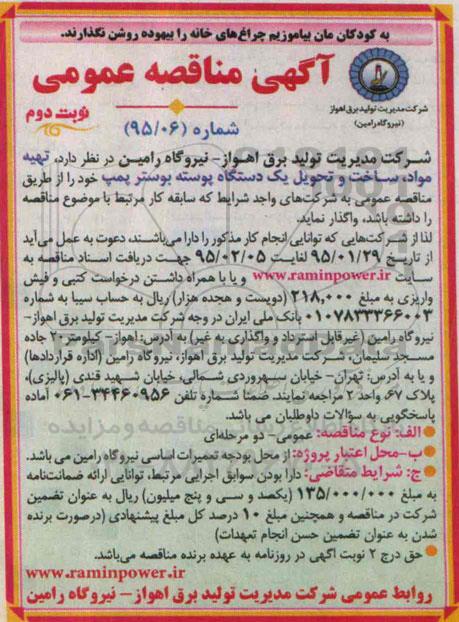 به کودکان مان بیاموزیم چراغ‌های خانه را بیهوده روشن نگذارند.
آگهی مناقصه عمومی
نوبت دوم
شماره (۹۵/۰۶)
شرکت مدیریت تولید برق اهواز
(نیروگاه رامین)
شرکت مدیریت تولید برق اهواز- نیروگاه رامین در نظر دارد، تهیه
مواد، ساخت و تحویل یک دستگاه پوسته بوستر پمپ خود را از طریق
مناقصه عمومی به شرکت‌های واجد شرایط که سابقه کار مرتبط با موضوع مناقصه
را داشته باشد، واگذار نماید.
لذا از شرکت‌هایی که توانایی انجام کار مذکور را دارا می‌باشند، دعوت به عمل می‌آید
از تاریخ ۹۵/۰۱/۲۹ لغایت ۹۵/۰۲/۰۵ جهت دریافت اسناد مناقصه به
سایت www.raminpower.ir و یا با همراه داشتن درخواست کتبی و فیش
واریزی به مبلغ ۲۱۸,۰۰۰ (دویست و هجده هزار) ریال به حساب سیبا به شماره
۰۱۰۷۸۳۳۳۶۶۰۰۳ بانک ملی ایران در وجه شرکت مدیریت تولید برق اهواز-
نیروگاه رامین (غیرقابل استرداد و واگذاری به غیر) به آدرس: اهواز- کیلومتر ۲۰ جاده
مسجد سلیمان، شرکت مدیریت تولید برق اهواز، نیروگاه رامین (اداره قراردادها)
و یا به آدرس: تهران- خیابان سهروردی شمالی، خیابان شهید قندی (پالیزی)،
پلاک ۶۷، واحد ۲ مراجعه نمایند. ضمنا شماره تلفن ۳۴۴۶۰۹۵۶-۰۶۱ آماده
پاسخگویی به سؤالات داوطلبان می باشد.
الف: نوع مناقصه: عمومی- دو مرحله‌ای
ب-محل اعتبار پروژه: از محل بودجه تعمیرات اساسی نیروگاه رامین می باشد.
ج: شرایط متقاضی: دارا بودن سوابق اجرایی مرتبط، توانایی ارائه ضمانت‌نامه
به مبلغ ۱۳۵/۰۰۰/۰۰۰ (یکصد و سی و پنج میلیون) ریال به عنوان تضمین
شرکت در مناقصه و همچنین مبلغ ۱۰ درصد کل مبلغ پیشنهادی (درصورت برنده
شدن به عنوان تضمین حسن انجام تعهدات)
حق درج ۲ نوبت آگهی در روزنامه به عهده برنده مناقصه می‌باشد.
www.raminpower.ir
روابط عمومی شرکت مدیریت تولید برق اهواز- نیروگاه رامین